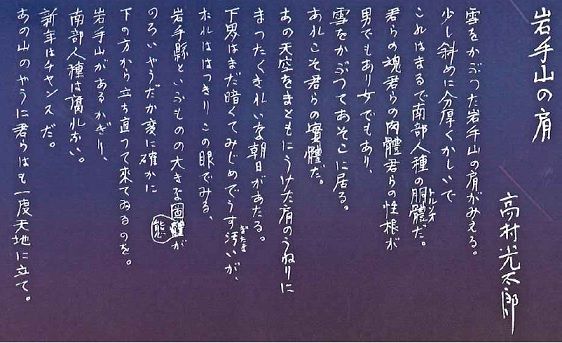 岩手山の肩
高村光太郎
雪をかぶつた岩手山の肩がみえる。
少し斜めに分厚くかしいで
これはまるで南部人種の胴體だ。
トルソオ
君らの魂君らの肉體君らの性根が
男でもあり女でもあり、
雪をかぶつてあそこに居る。
あれこそ君らの實體だ。
あの天空をまともにうけた肩のうねりに
まつたくきれいな朝日があたる。
下界はまだ暗くてみじめでうす汚いが、
ぎたな
おれははつきりこの眼でみる、
岩手縣といふものの大きな図體が
能
のろいやうだが変に確かに
下の方から立ち直つて來てゐるのを。
岩手山があるかぎり、
南部人種は腐れない。
新年はチヤンスだ。
あの山のやうに君らはも一度天地に立て。